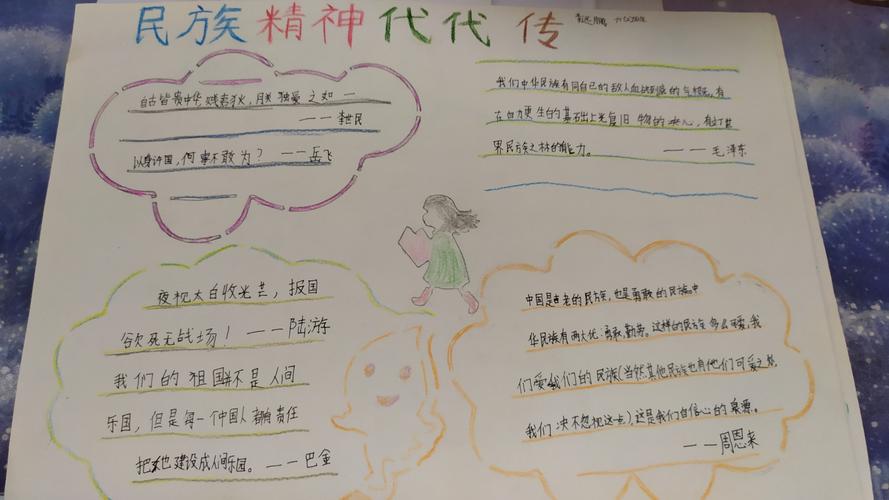 民族精神代代传
自古皆贵中华,贱夷狄,朕独爱之如一
——李世民
以身许国,何事不敢为?——岳飞
我们中华民族有同自己的敌人血战到底的气概,有
在自力更生的基础上光复旧物的决心,有
界民族之林的能力。——毛泽东
夜视太白收光芒,报国
欲死无战场!——陆游
我们的祖国并不是人间
乐园,但是每一个中国人都有责任
把她建设成人间乐园。——巴金
中国是古老的民族,也是勇敢的民族。中
华民族有两大优:勇敢,勤劳。这样的民族多么可爱,我
们爱我们的民族(当然其他民族也有他们可爱之处,
我们决不忽视这点),这是我们自信心的泉源。
——周恩来